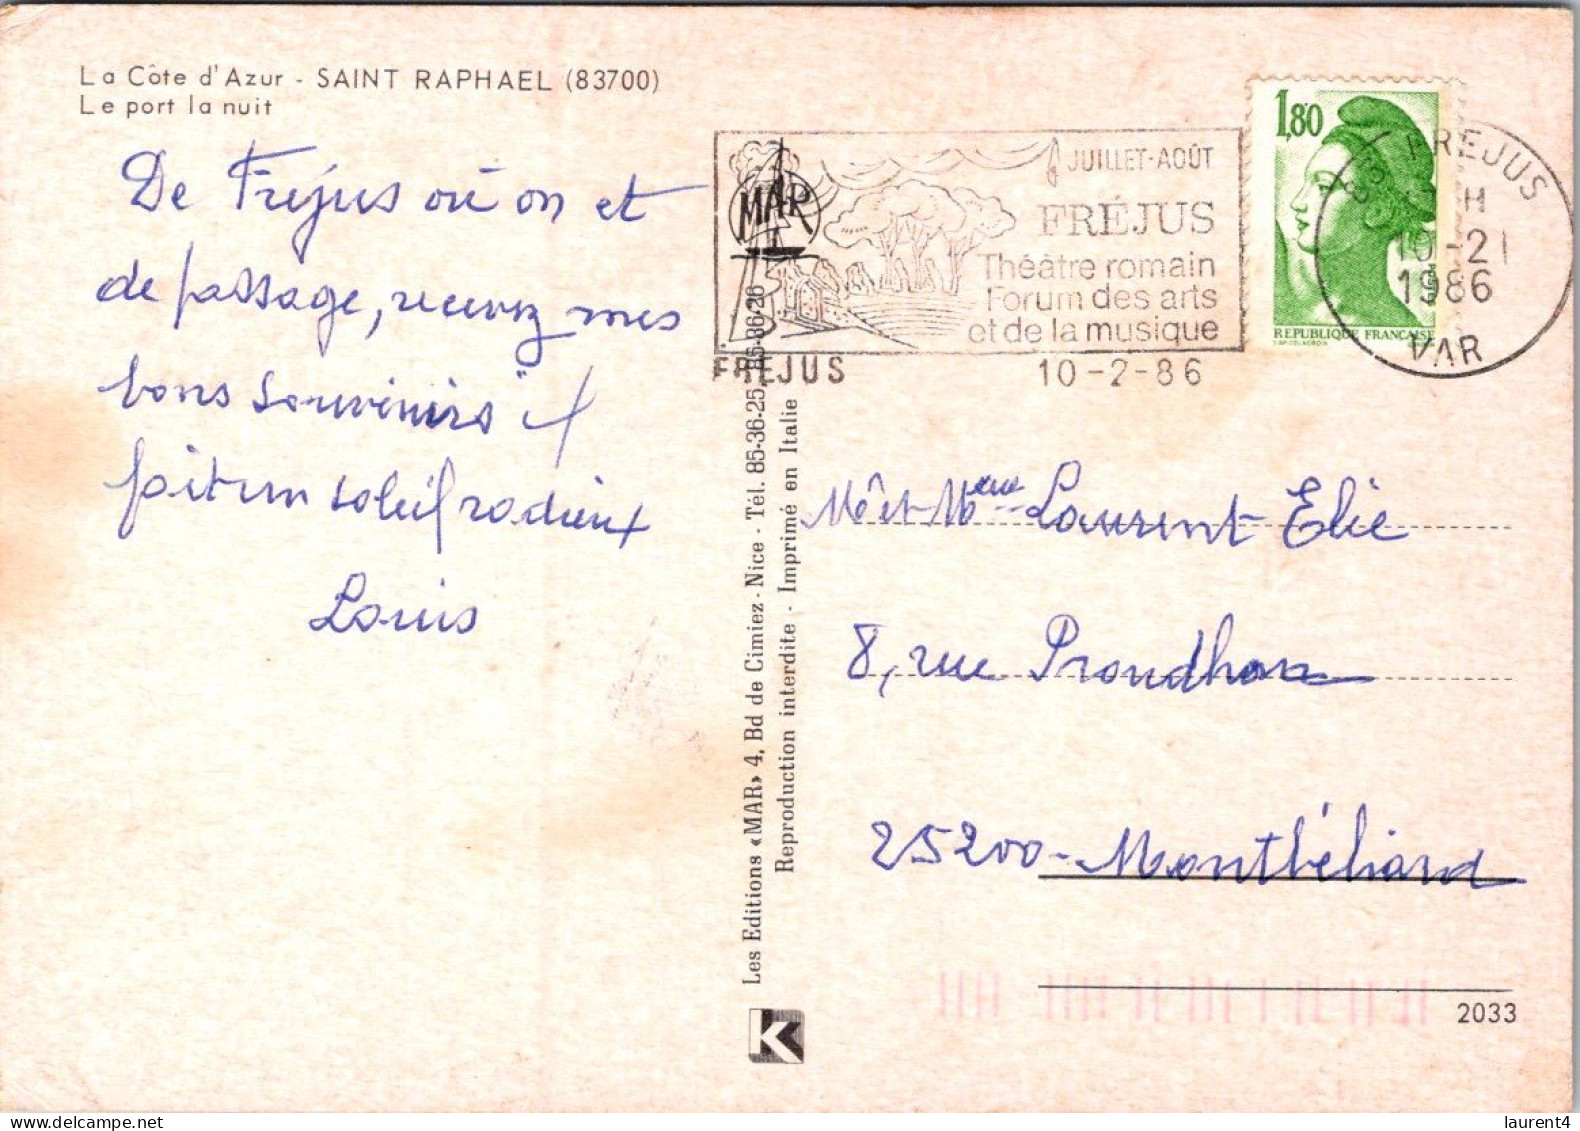 La Côte d'Azur - SAINT RAPHAEL (83700)
Le port la nuit
De Fréjus où on est
de passage, recevez mes
bons souvenirs il
fait un soleil radieux
Louis
JUILLET-AOÛT
FRÉJUS
Théâtre romain
Forum des arts
et de la musique
MAR
FREJUS
10-2-86
1,80
REPUBLIQUE FRANÇAISE
FREJUS
H
10-2
1986
VAR
Les Editions «MAR» 4, Bd de Cimiez - Nice - Tél. 85-36-25, 85-36-26
Reproduction interdite - Imprimé en Italie
Mr et Mme Laurent Elie
8, rue Proudhon
25200 - Montbéliard
K
2033
laurent4